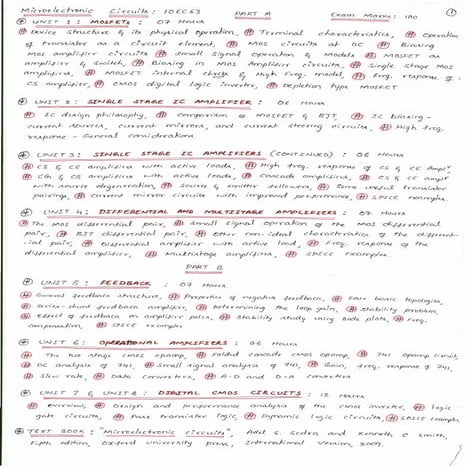 Microelectronic Circuits : 10EC63 PART A Exam Marks: 100
UNIT 1 : MOSFETs : 07 Hours
Device structure & its physical operation, Terminal characteristics, Operation
of transistor as a circuit element, MOS circuits at DC, Biasing
MOS amplifier circuits, Small signal operation & models, MOSFET as
amplifier & switch, Biasing in MOS amplifier circuits, Single stage MOS
amplifiers, MOSFET internal & High Freq. model, Freq. response of
CS amplifier, CMOS digital logic inverter, Depletion type MOSFET
UNIT 2 : SINGLE STAGE IC AMPLIFIER : 06 Hours
IC design philosophy, comparison of MOSFET & BJT, IC biasing -
current sources, current mirrors, and current steering circuits, High freq.
response - General consideration.
UNIT 3 : SINGLE STAGE IC AMPLIFIERS (CONTINUED) : 06 Hours
CS & CE amplifiers with active loads, High freq. response of CS & CE Ampl
CG & CB amplifiers with active loads, Cascode amplifiers, CS & CE ampl
with source degeneration, Source & emitter followers, Some useful transistor
pairings, current mirror circuits with improved performance, SPICE examples.
UNIT 4 : DIFFERENTIAL AND MULTISTAGE AMPLIFIERS : 07 Hours
The MOS differential pair, small signal operation of the MOS differential
pair, BJT differential pair, Other non-ideal characteristics of the different-
-ial pair, Differential amplifier with active load, Freq. response of the
differential amplifier, Multistage amplifiers, SPICE examples.
PART B
UNIT 5 : FEEDBACK : 07 Hours
General feedback structure, Properties of negative feedback, Four basic topologies,
Series-shunt feedback amplifier, Determining the loop gain, Stability problem,
Effect of feedback on amplifier poles, Stability study using Bode plots, Freq.
compensation, SPICE examples
UNIT 6 : OPERATIONAL AMPLIFIERS : 06 Hours
The two stage CMOS opamp, Folded cascode CMOS opamp, 741 opamp circuit,
DC analysis of 741, Small signal analysis of 741, Gain, freq. response of 741,
Slew rate, Data converters, A-D and D-A converters
UNIT 7 & UNIT 8 : DIGITAL CMOS CIRCUITS : 12 Hours
Overview, Design and performance analysis of the CMOS inverter, logic
gate circuits, Pass transistor logic, Dynamic logic circuits, SPICE examples
TEXT BOOK : "Microelectronic circuits", Adel S. Sedra and Kenneth C Smith,
Fifth edition, Oxford university press, International Version, 2009.